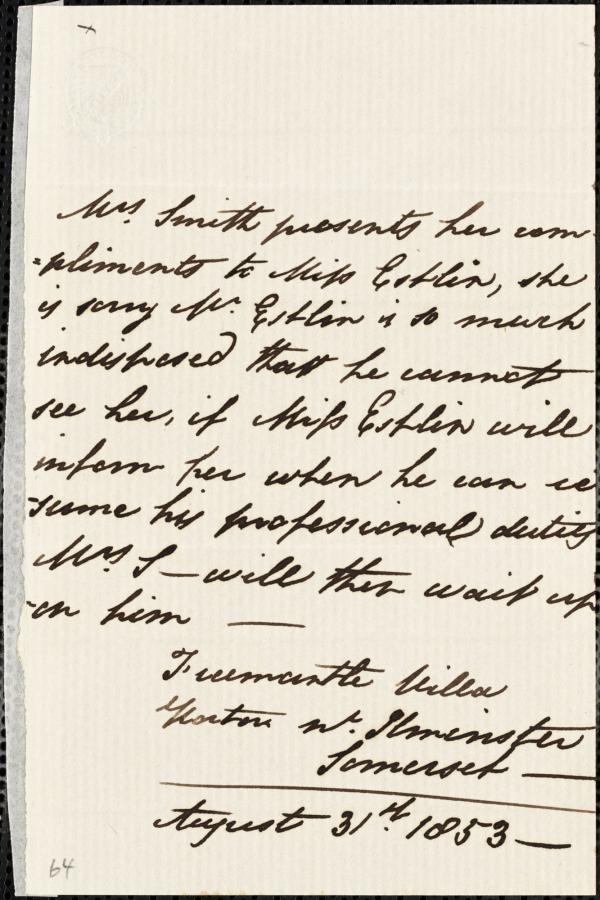 Mrs. Smith presents her com-
=pliments to Miss Estlin, she
is sorry Mr. Estlin is so much
indisposed that he cannot
see her, if Miss Estlin will
inform her when he can re
-sume his professional duties
Mrs S— will then wait up
-on him —
Freemantle Villa
Horton nr. Ilminster
Somerset —
August 31st. 1853 —
64